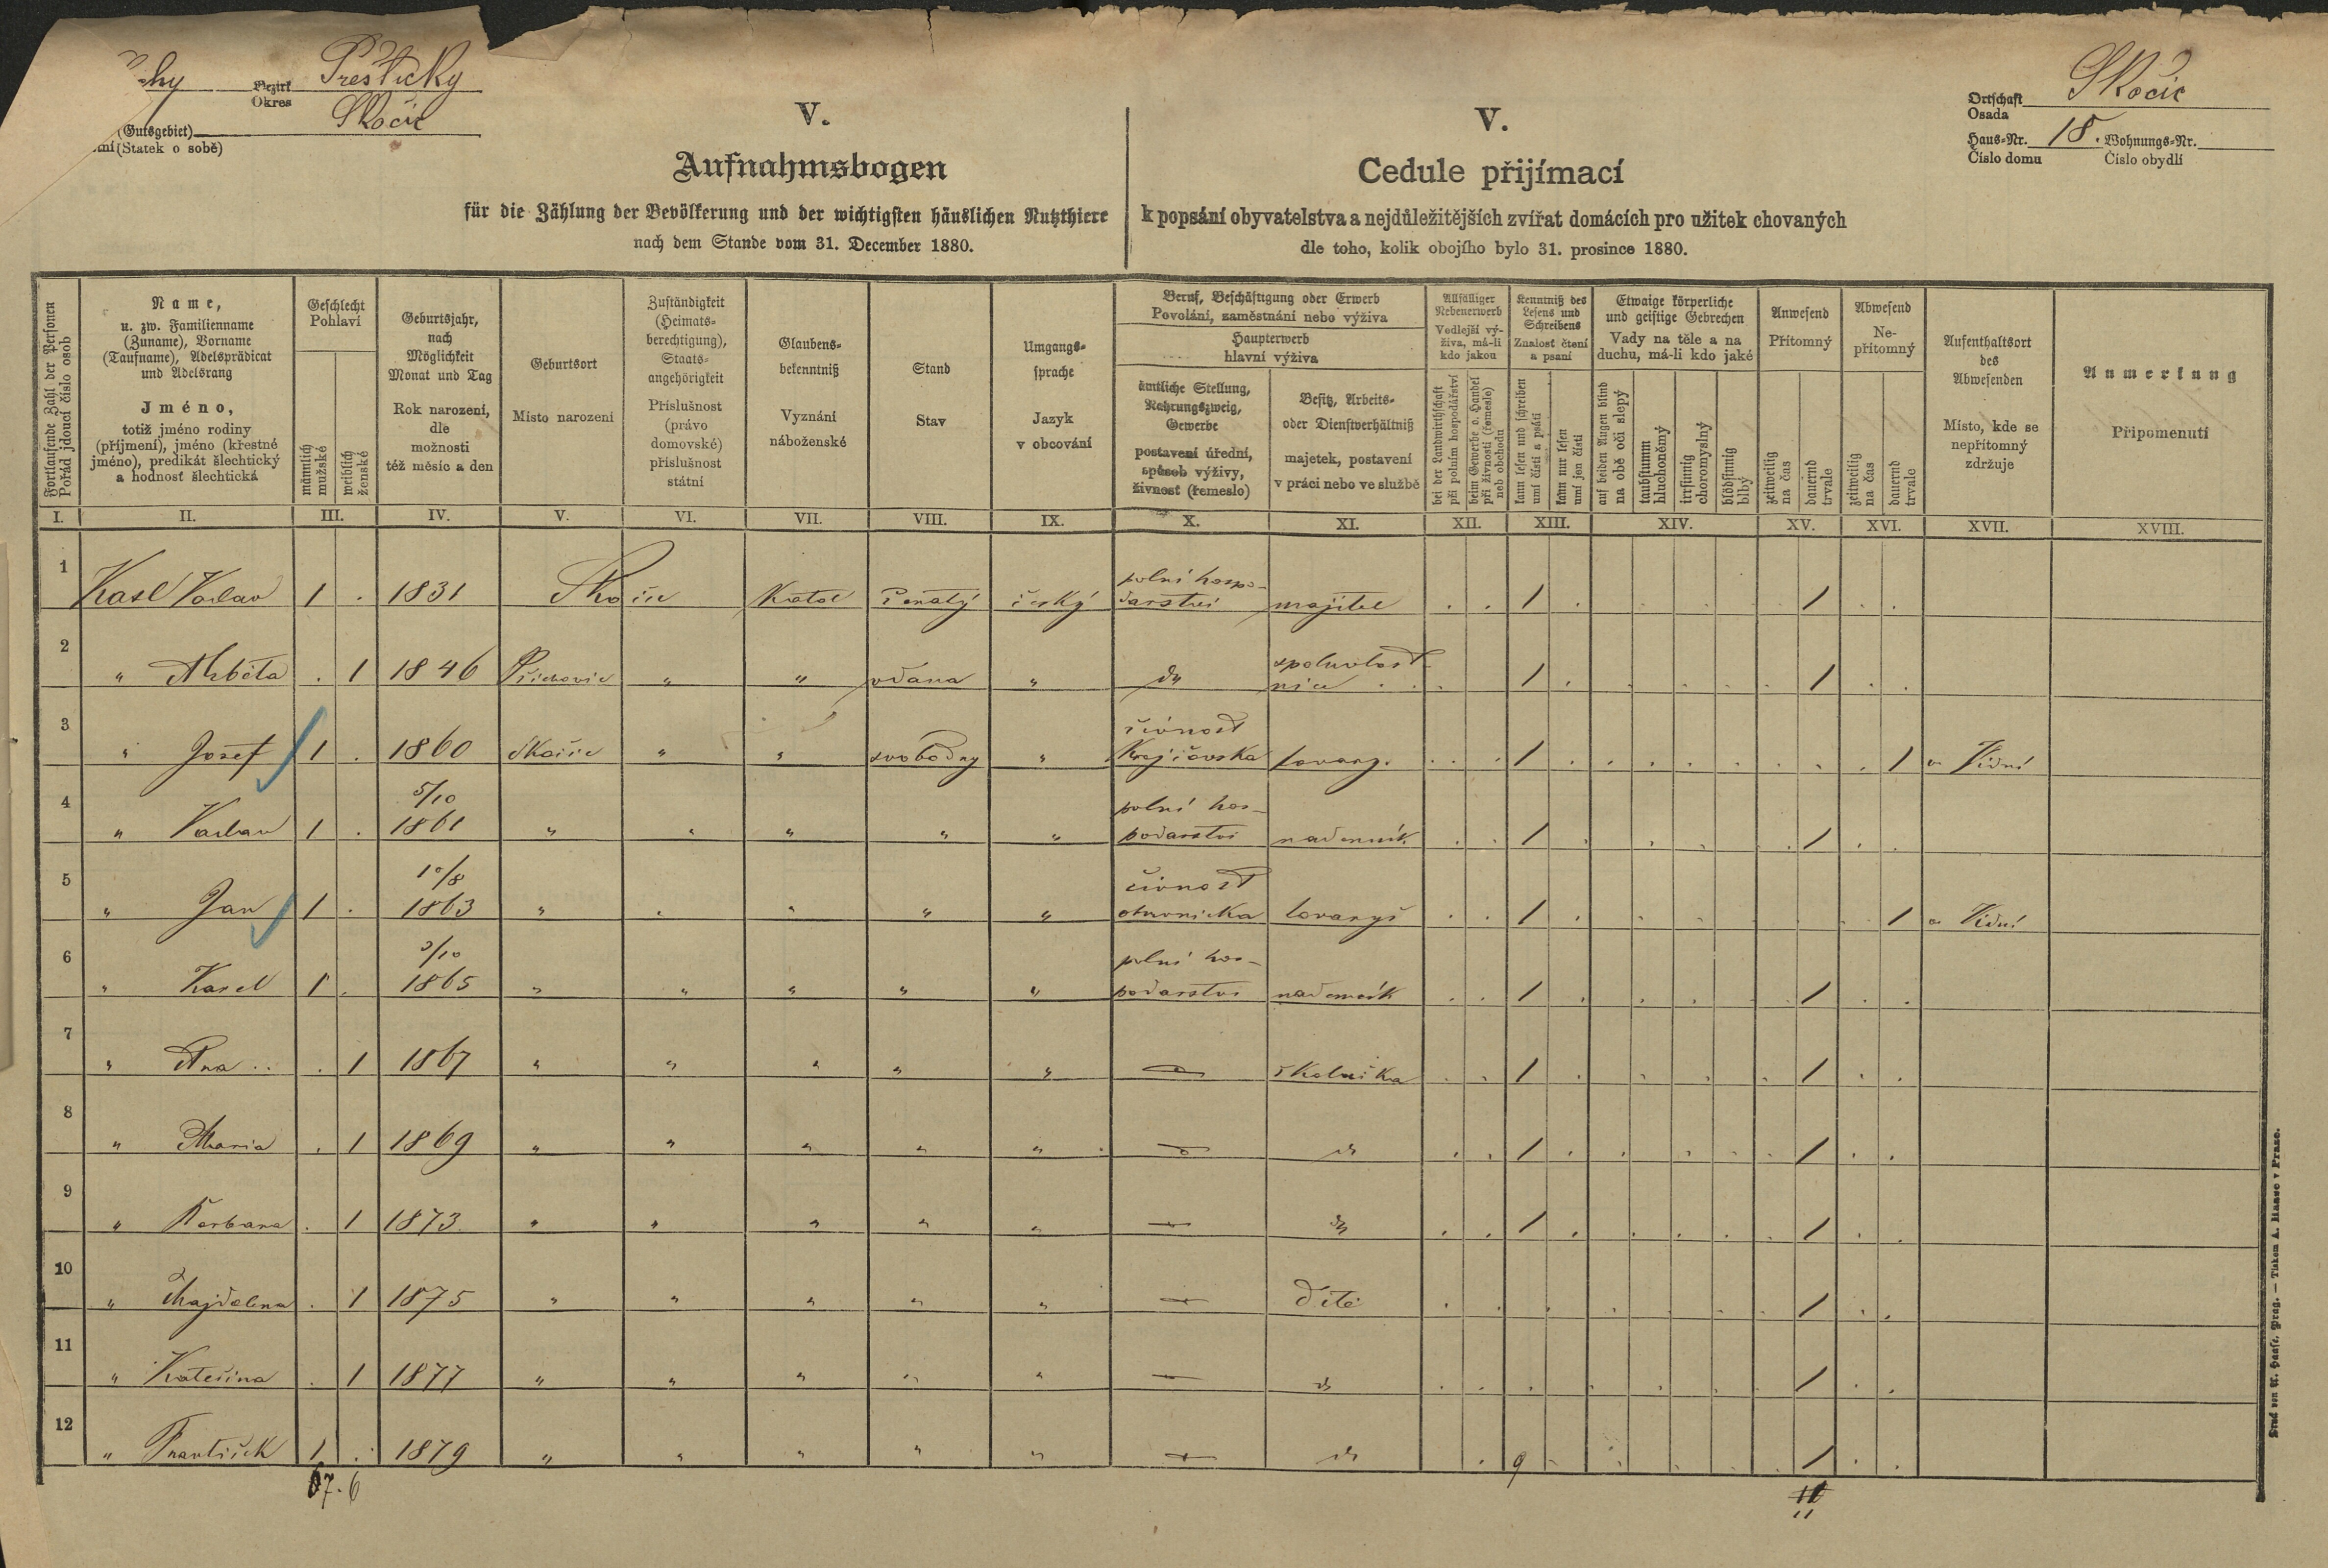 Bezirk Přestický
Okres
(Gutsgebiet) Skočic
(Statek o sobě)
V.
Aufnahmsbogen
für die Zählung der Bevölkerung und der wichtigsten häuslichen Nutzthiere
nach dem Stande vom 31. December 1880.
V.
Cedule přijímací
k popsání obyvatelstva a nejdůležitějších zvířat domácích pro užitek chovaných
dle toho, kolik obojího bylo 31. prosince 1880.
Ortschaft Skočic
Osada
Haus-Nr. 18. Wohnungs-Nr.
Číslo domu Číslo obydlí
Fortlaufende Zahl der Personen
Pořád jdoucí číslo osob
Name,
u. zw. Familienname
(Zuname), Vorname
(Taufname), Adelsprädicat
und Adelsrang
Jméno,
totiž jméno rodiny
(příjmení), jméno (křestné
jméno), predikát šlechtický
a hodnosť šlechtická
Geschlecht
Pohlaví
männlich
mužské
weiblich
ženské
Geburtsjahr,
nach
Möglichkeit
Monat und Tag
Rok narození,
dle
možnosti
též měsíc a den
Geburtsort
Místo narození
Zuständigkeit
(Heimats-
berechtigung),
Staats-
angehörigkeit
Příslušnost
(právo
domovské)
příslušnost
státní
Glaubens-
bekenntniß
Vyznání
náboženské
Stand
Stav
Umgangs-
sprache
Jazyk
v obcování
Beruf, Beschäftigung oder Erwerb
Povolání, zaměstnání nebo výživa
Haupterwerb
hlavní výživa
ämtliche Stellung,
Nahrungszweig,
Gewerbe
postavení úřední,
spůsob výživy,
živnosť (řemeslo)
Besitz, Arbeits-
oder Dienstverhältniß
majetek, postavení
v práci nebo ve službě
Allfälliger
Nebenerwerb
Vedlejší vý-
živa, má-li
kdo jakou
bei der Landwirthschaft
při polním hospodářství
beim Gewerbe o. Handel
při živnosti (řemesle)
neb obchodu
Kenntniß des
Lesens und
Schreibens
Znalosť čtení
a psaní
kann lesen und schreiben
umí čísti a psáti
kann nur lesen
umí jen čísti
Etwaige körperliche
und geistige Gebrechen
Vady na těle a na
duchu, má-li kdo jaké
auf beiden Augen blind
na obě oči slepý
taubstumm
hluchoněmý
irrsinnig
choromyslný
blödsinnig
blbý
Anwesend
Přítomný
zeitweilig
na čas
dauernd
trvale
Abwesend
Ne-
přítomný
zeitweilig
na čas
dauernd
trvale
Aufenthaltsort
des
Abwesenden
Místo, kde se
nepřítomný
zdržuje
Anmerkung
Připomenutí
I. II. III. IV. V. VI. VII. VIII. IX. X. XI. XII. XIII. XIV. XV. XVI. XVII. XVIII.
1 Kasl Vaclav 1 . 1831 Skočic Katol ženatý český polní hospo-
darství majitel . . 1 . 1 . .
2 " Alzběta . 1 1846 Přichovic " " vdana " dtt spoluvlast-
nice . 1 . 1 . .
3 " Josef 1 . 1860 Skočic " " svobodny " živnost
Krejčovska tovarg. . . 1 . 1 ve Vidni
4 " Vaclav 1 . 5/10
1861 " " " " " polní hos-
podarstvi nadennik . . 1 . 1 . .
5 " Jan 1 . 10/8
1863 " " " " " živnost
obuvnicka tovaryš . . 1 . 1 ve Vidni
6 " Karel 1 . 3/10
1865 " " " " " polni hos-
podarstvi nadennik . . 1 . 1 . .
7 " Ana . 1 1867 " " " " " — školnička . . 1 . 1 . .
8 " Maria . 1 1869 " " " " " — dt . . 1 . 1 . .
9 " Barbara . 1 1873 " " " " " — dt . . 1 . 1 . .
10 " Majdalena . 1 1875 " " " " " — ditě . . 1 . .
11 " Kateřina . 1 1877 " " " " " — dt . . 1 . .
12 " František 1 . 1879 " " " " " — dt . 9 1 . .
7. 6
11
Druck von A. Haase, Prag. — Tiskem A. Haase v Praze.